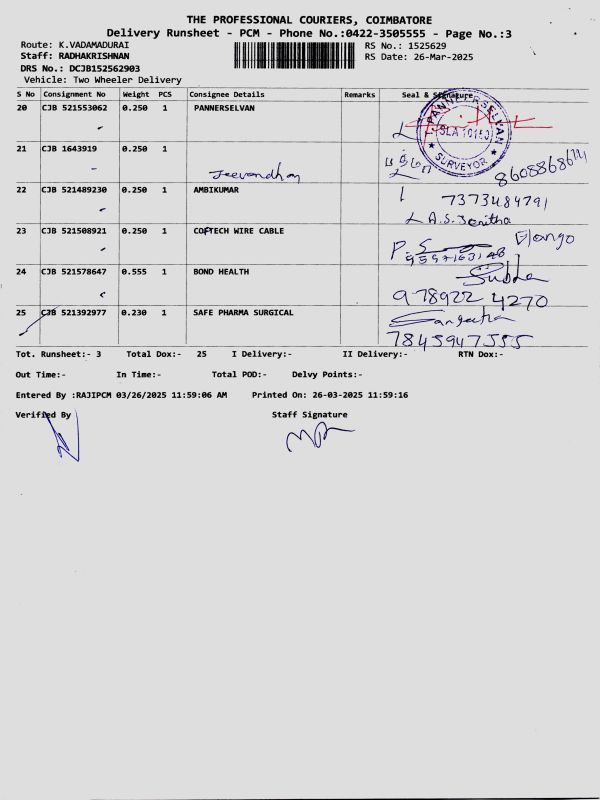 THE PROFESSIONAL COURIERS, COIMBATORE
Delivery Runsheet - PCM - Phone No.:0422-3505555 - Page No.:3
Route: K.VADAMADURAI
RS No.: 1525629
Staff: RADHAKRISHNAN
RS Date: 26-Mar-2025
DRS No.: DCJB152562903
Vehicle: Two Wheeler Delivery
S No Consignment No Weight PCS Consignee Details Remarks Seal & Signature
20 CJB 521553062 0.250 1 PANNERSELVAN
T.PANNEERSELVAN
SLA 10150
SURVEYOR
21 CJB 1643919 0.250 1
Jeevandham
8608868614
22 CJB 521489230 0.250 1 AMBIKUMAR
7373484791
A.S. Jenitha
23 CJB 521508921 0.250 1 COFTECH WIRE CABLE
P.S Elango
24 CJB 521578647 0.555 1 BOND HEALTH
Subha
978922 4270
25 CJB 521392977 0.230 1 SAFE PHARMA SURGICAL
Sangeetha
7845947555
Tot. Runsheet:- 3 Total Dox:- 25 I Delivery:- II Delivery:- RTN Dox:-
Out Time:- In Time:- Total POD:- Delvy Points:-
Entered By :RAJIPCM 03/26/2025 11:59:06 AM Printed On: 26-03-2025 11:59:16
Verified By Staff Signature